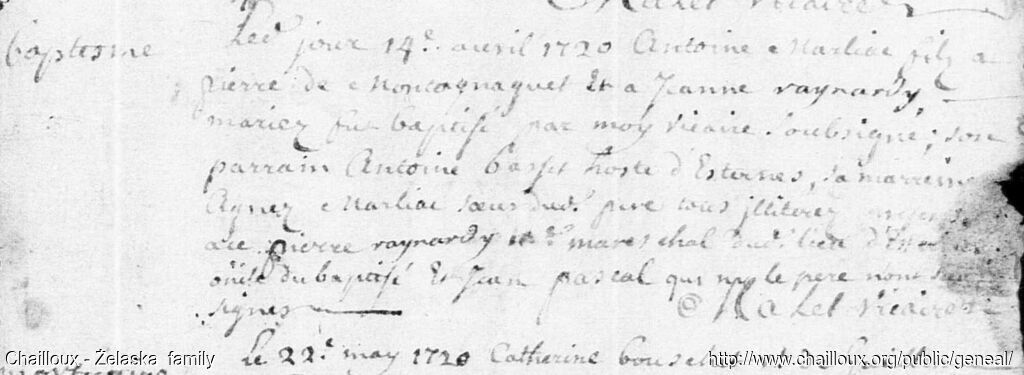 Malet Vicaire
baptesme
Led. jour 14e. auril 1720 Antoine Marliac filz a
pierre de Montagnaguet Et a Jeanne raynardy
mariez fut baptisé par moy vicaire soubsigné; son
parrain Antoine basset hoste d'Esternes, sa marreine
Agnez Marliac sœur dud. pere tous jlliterez
pierre raynardy mareschal dud. lieu
du baptisé Et Jean pascal qui ny le pere nont
signes
Malet Vicaire
Le 22e. may 1720 Catherine
© Chailloux - Żelaska family
http://www.chailloux.org/public/geneal/